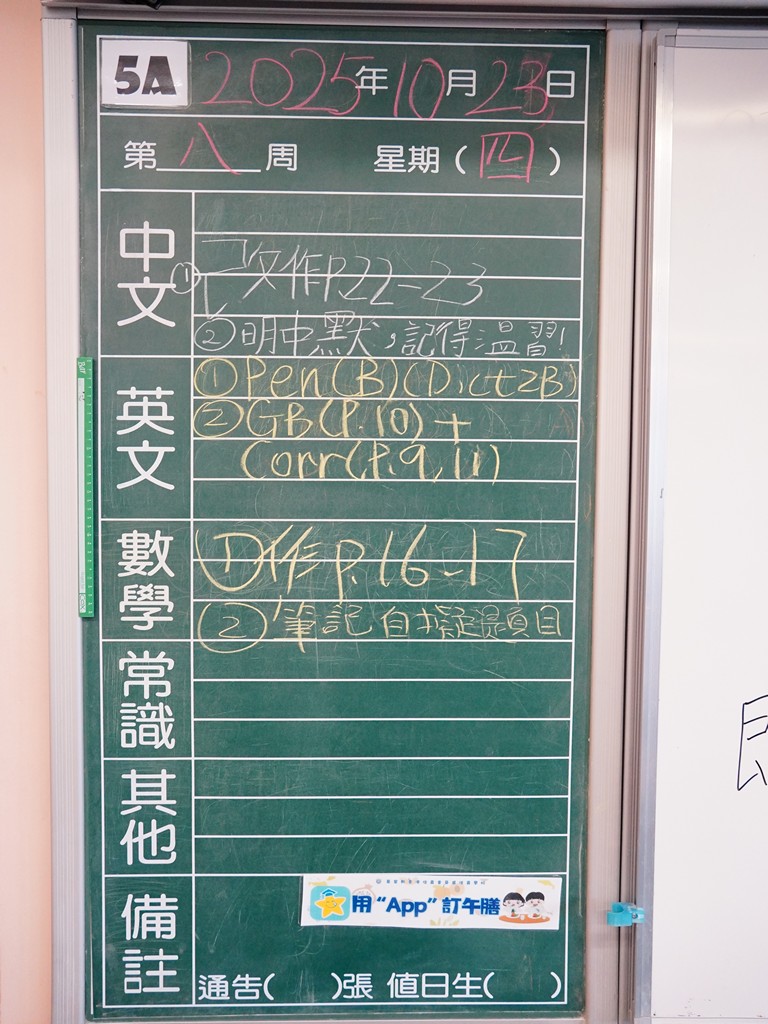 5A 2025年10月23日
第八周 星期(四)
中文
①改作P.22-23
②明中默，記得溫習!
英文
①Pen(B)(Dict2B)
②GB(P.10)+
Corr(P.9,11)
數學
①作P.16-17
②筆記自擬題目
常識
其他
備註
用“App”訂午膳
通告( )張 值日生( )